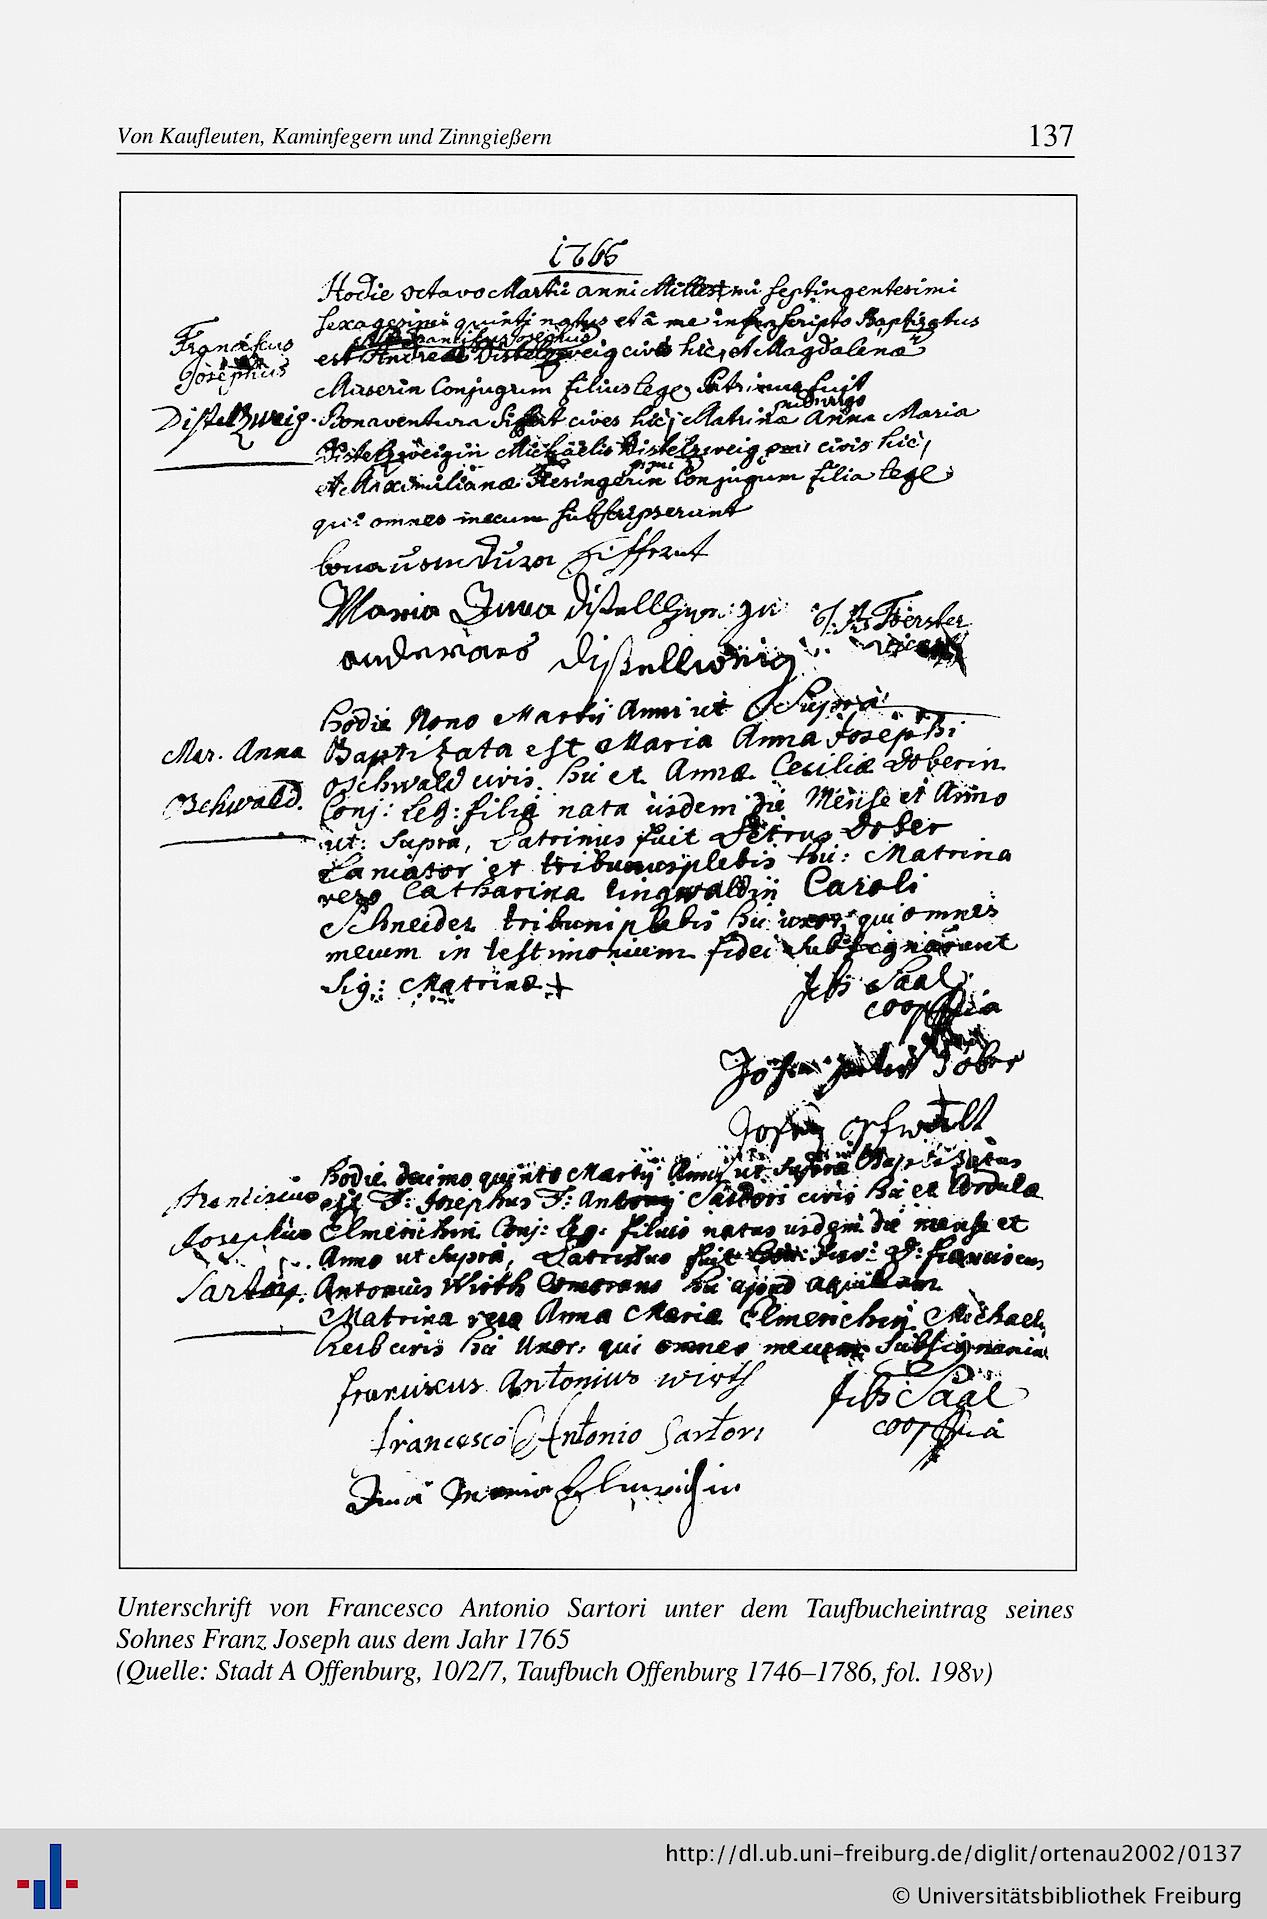 Von Kaufleuten, Kaminfegern und Zinngießern
137
1765
Hodie octavo Martii anni Millesimi septingentesimi
sexagesimi quinti natus et a me infrascripto Baptizatus
Franciscus
Josephus
est Andreae Distelzweig civis hic, et Magdalenae
Conjugum filius leg. Patrinus fuit
Distelzweig
Bonaventura civis hic, Matrina Anna Maria
Distelzweigin Michaelis Distelzweig civis hic,
et Maximilianae Conjugum filia legl
qui omnes mecum subscripserunt
Maria Anna
Foerster
Hodie Nono Martij Anni ut Supra
Mar. Anna
Baptizata est Maria Anna Josephi
Oschwald.
Oschwald civis hii et Annae Ceciliae Doberin
Conj: Leg: filia nata iisdem die Mense et Anno
ut: Supra, Patrinus fuit Petrus Dober
Laniator et tribunusplebis hii: Matrina
vero Catharina Lingwaldin Caroli
Schneider tribuni plebis hii uxor, qui omnes
mecum in testimonium fidei subsignarunt
Sig: Matrinae +
Saal
Dober
Hodie decimo quinto Martij Anni ut supra Baptizatus
Franciscus
est F: Josephus F: Antonij Sartori civis hii et Cordula
Josephus
Elmerichin Conj: Leg: filius natus iisdem die mense et
Anno ut supra, Patrinus fuit franciscus
Sartori.
Antonius Wirth hii apud aquilam
Matrina vero Anna Maria Elmerichin Michael
civis hii Uxor, qui omnes mecum
franciscus Antonius wirth
Saal
Francesco Antonio Sartori
Anna Maria Elmerichin
Unterschrift von Francesco Antonio Sartori unter dem Taufbucheintrag seines
Sohnes Franz Joseph aus dem Jahr 1765
(Quelle: Stadt A Offenburg, 10/2/7, Taufbuch Offenburg 1746–1786, fol. 198v)
http://dl.ub.uni-freiburg.de/diglit/ortenau2002/0137
© Universitätsbibliothek Freiburg